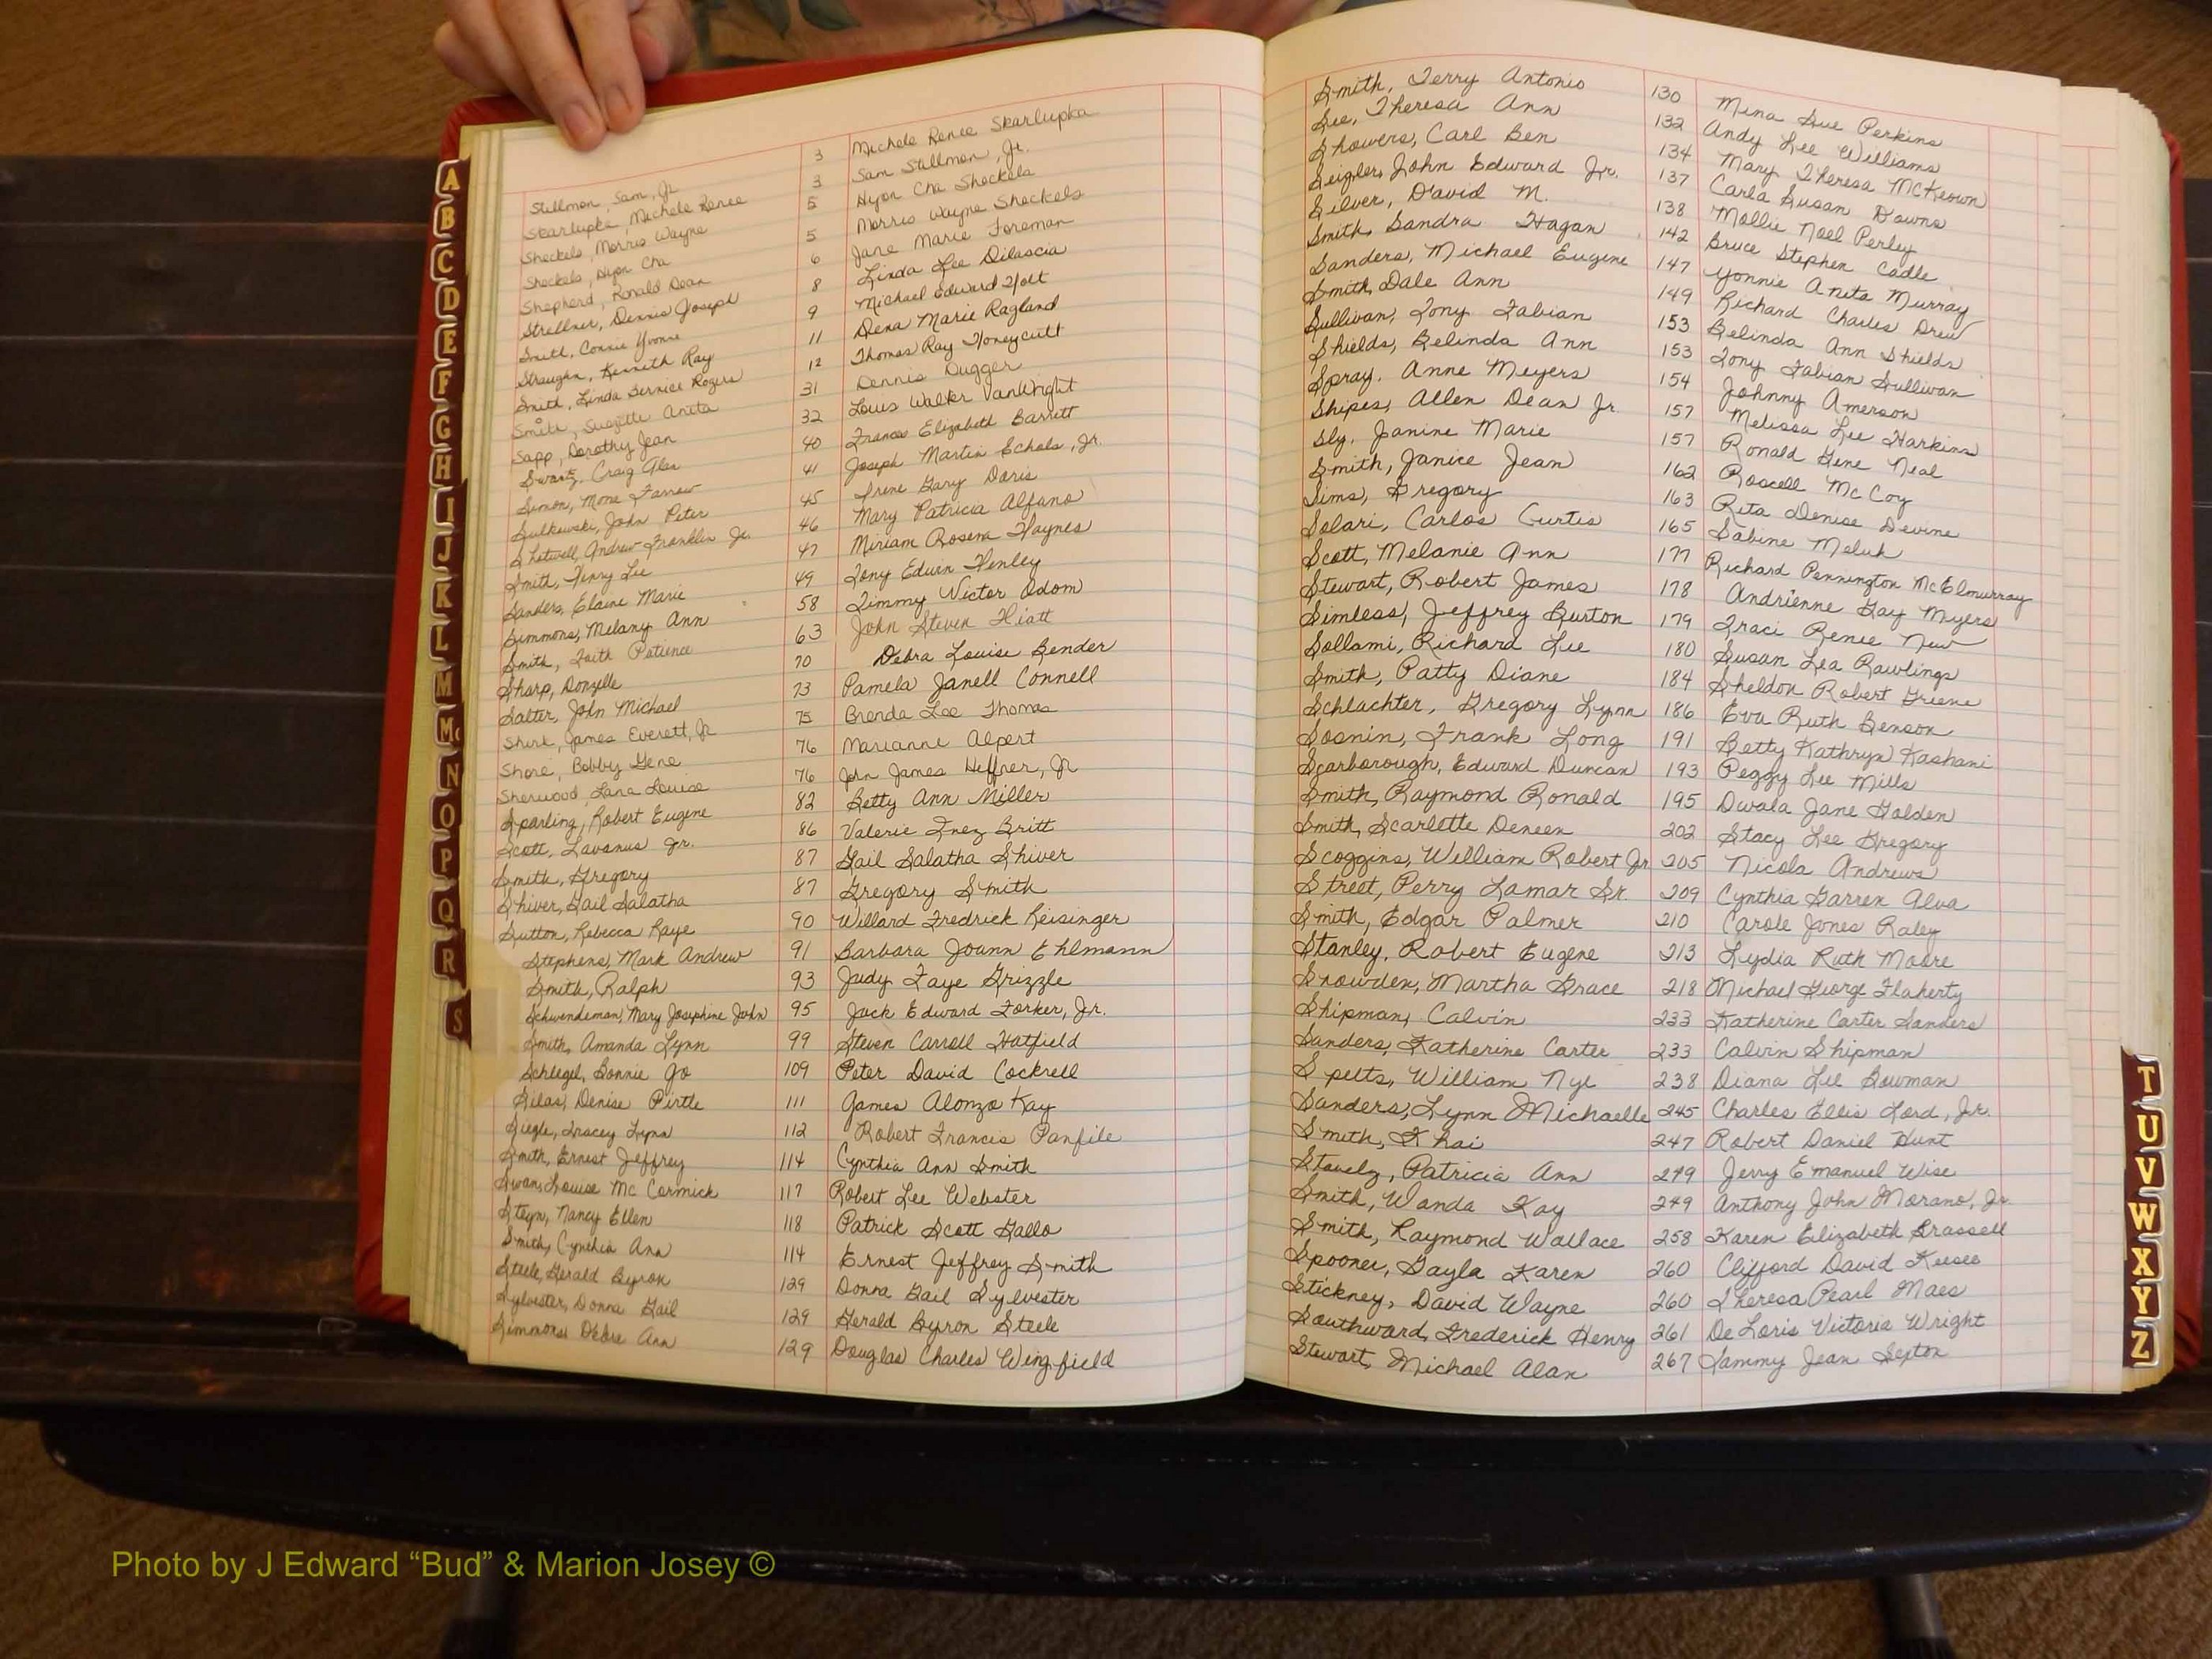 Stillmon, Sam, Jr 3 Michele Renee Skarlupka
Skarlupka, Michele Renee 3 Sam Stillmon, Jr.
Sheckels, Morris Wayne 5 Hyon Cha Sheckels
Sheckels, Hyon Cha 5 Morris Wayne Sheckels
Shepherd, Ronald Dean 6 Jane Marie Foreman
Strellner, Dennis Joseph 8 Linda Lee Dilascia
Smith, Connie Yvonne 9 Michael Edward Holt
Straughn, Kenneth Ray 11 Dena Marie Ragland
Smith, Linda Bernice Rogers 12 Thomas Ray Honeycutt
Smith, Suzette Anita 31 Dennis Dugger
Sapp, Dorothy Jean 32 Louis Walker VanWright
Swartz, Craig Glen 40 Frances Elizabeth Barrett
Simon, Mona Farrow 41 Joseph Martin Echols, Jr.
Sulkowski, John Peter 45 Irene Gary Doris
Shotwell, Andrew Franklin Jr. 46 Mary Patricia Alfano
Smith, Henry Lee 47 Miriam Rosena Haynes
Sanders, Elaine Marie 49 Tony Edurn Henley
Simmons, Melany Ann 58 Timmy Victor Odom
Smith, Faith Patience 63 John Steven Hiatt
Sharp, Donzelle 70 Debra Louise Bender
Salter, John Michael 73 Pamela Janell Connell
Shirk, James Everett, Jr 75 Brenda Lee Thomas
Shore, Bobby Gene 76 Marianne Alpert
Sherwood, Lana Louise 76 John James Heffner, Jr
Sparling, Robert Eugene 82 Betty Ann Miller
Scott, Lavanus Jr. 86 Valerie Inez Britt
Smith, Gregory 87 Gail Salatha Shiver
Shiver, Gail Salatha 87 Gregory Smith
Sutton, Rebecca Kaye 90 Willard Fredrick Reisinger
Stephens, Mark Andrew 91 Barbara Joann Ehlmann
Smith, Ralph 93 Judy Faye Grizzle
Schwendeman, Mary Josephine John 95 Jack Edward Forker, Jr.
Smith, Amanda Lynn 99 Steven Carroll Hatfield
Schlegel, Bonnie Jo 109 Peter David Cockrell
Silas, Denise Pirtle 111 James Alonzo Kay
Siegle, Tracey Lynn 112 Robert Francis Panfile
Smith, Ernest Jeffrey 114 Cynthia Ann Smith
Swan, Louise Mc Cormick 117 Robert Lee Webster
Steyn, Nancy Ellen 118 Patrick Scott Gallo
Smith, Cynthia Ann 114 Ernest Jeffrey Smith
Steele, Gerald Byron 129 Donna Gail Sylvester
Sylvester, Donna Gail 129 Gerald Byron Steele
Simmons, Debre Ann 129 Douglas Charles Wingfield
Smith, Terry Antonio 130 Mina Sue Perkins
See, Theresa Ann 132 Andy Lee Williams
Showers, Carl Ben 134 Mary Theresa McKeown
Seigler, John Edward Jr. 137 Carla Susan Downs
Silver, David M. 138 Mollie Noel Perley
Smith, Sandra Hagan 142 Bruce Stephen Cadle
Sanders, Michael Eugene 147 Yonnie Anita Murray
Smith, Dale Ann 149 Richard Charles Drew
Sullivan, Tony Fabian 153 Belinda Ann Shields
Shields, Belinda Ann 153 Tony Fabian Sullivan
Spray, Anne Meyers 154 Johnny Amerson
Shipes, Allen Dean Jr. 157 Melissa Lee Harkins
Sly, Janine Marie 157 Ronald Gene Neal
Smith, Janice Jean 162 Roscell McCoy
Sims, Gregory 163 Rita Denise Devine
Solari, Carlos Curtis 165 Sabine Meluk
Scott, Melanie Ann 177 Richard Pennington McElmurray
Stewart, Robert James 178 Andrienne Gay Myers
Simless, Jeffrey Burton 179 Traci Renee New
Sollami, Richard Lee 180 Susan Lea Rawlings
Smith, Patty Diane 184 Sheldon Robert Greene
Schlachter, Gregory Lynn 186 Eva Ruth Benson
Sosnin, Frank Long 191 Betty Kathryn Kashani
Scarborough, Edward Duncan 193 Peggy Lee Mills
Smith, Raymond Ronald 195 Dwala Jane Holden
Smith, Scarlette Deneen 202 Stacy Lee Gregory
Scoggins, William Robert Jr. 205 Nicola Andrews
Street, Perry Lamar Sr. 209 Cynthia Garren Alva
Smith, Edgar Palmer 210 Carole Jones Raley
Stanley, Robert Eugene 213 Lydia Ruth Moore
Snowden, Martha Grace 218 Michael George Flaherty
Shipman, Calvin 233 Katherine Carter Sanders
Sanders, Katherine Carter 233 Calvin Shipman
Spelts, William Nye 238 Diana Lee Bowman
Sanders, Lynn Michaelle 245 Charles Ellis Lord, Jr.
Smith, Khai 247 Robert Daniel Hunt
Stavely, Patricia Ann 249 Jerry Emanuel Wise
Smith, Wanda Kay 249 Anthony John Morano, Jr
Smith, Raymond Wallace 258 Karen Elizabeth Brassell
Spooner, Gayla Karen 260 Clifford David Keesee
Stickney, David Wayne 260 Theresa Pearl Maes
Southward, Frederick Henry 261 De Loris Victoria Wright
Stewart, Michael Alan 267 Tammy Jean Septon
A
B
C
D
E
F
G
H
I
J
K
L
M
Mc
N
O
P
Q
R
S
T
U
V
W
X
Y
Z
Photo by J Edward “Bud” & Marion Josey ©